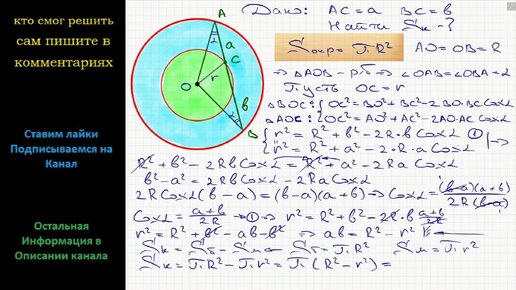 кто смог решить
сам пишите в
комментариях
Ставим лайки
Подписываемся на
Канал
Остальная
Информация в
Описании канала
A
α
a
C
O
r
b
α
B
Дано: AC = a BC = b
Найти Sк - ?
Sокр = πR² AO = OB = R
⇒ ΔAOB - р/б ⇒ ∠OAB = ∠OBA = α
Пусть OC = r
ΔBOC: { OC² = BO² + BC² - 2·BO·BC·Cosα
ΔAOC: { OC² = AO² + AC² - 2AO·AC Cosα
{ r² = R² + b² - 2R·b Cosα ① ⇒
{ r² = R² + a² - 2·R·a Cosα
R² + b² - 2Rb Cosα = R² + a² - 2Ra Cosα
b² - a² = 2Rb Cosα - 2Ra Cosα
2R Cosα (b - a) = (b - a)(a + b) ⇒ Cosα = (b-a)(a+b) / 2R(b-a)
Cosα = a+b / 2R ⇒ ① ⇒ r² = R² + b² - 2R·b a+b / 2R
r² = R² + b² - ab - b² ⇒ ab = R² - r²
Sк = Sб - Sм Sб = πR² Sм = πr²
Sк = πR² - πr² = π(R² - r²) =